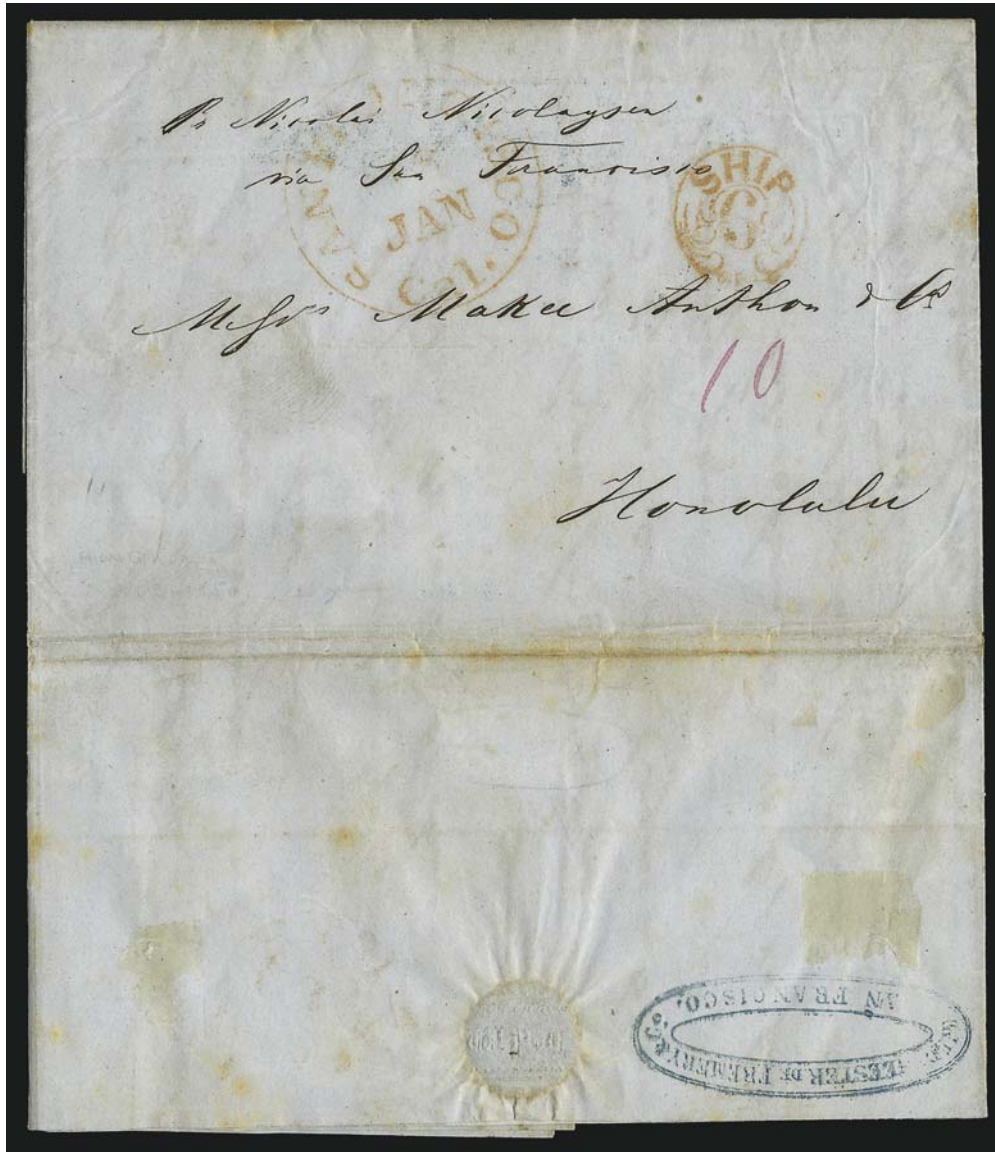 Pr Nicolai Nicolaysen
via San Francisco
SAN FRANCISCO
JAN
Cal.
SHIP
6
Messrs Makee Anthon & Co
10
Honolulu
DE FREMERY & Co
SAN FRANCISCO.